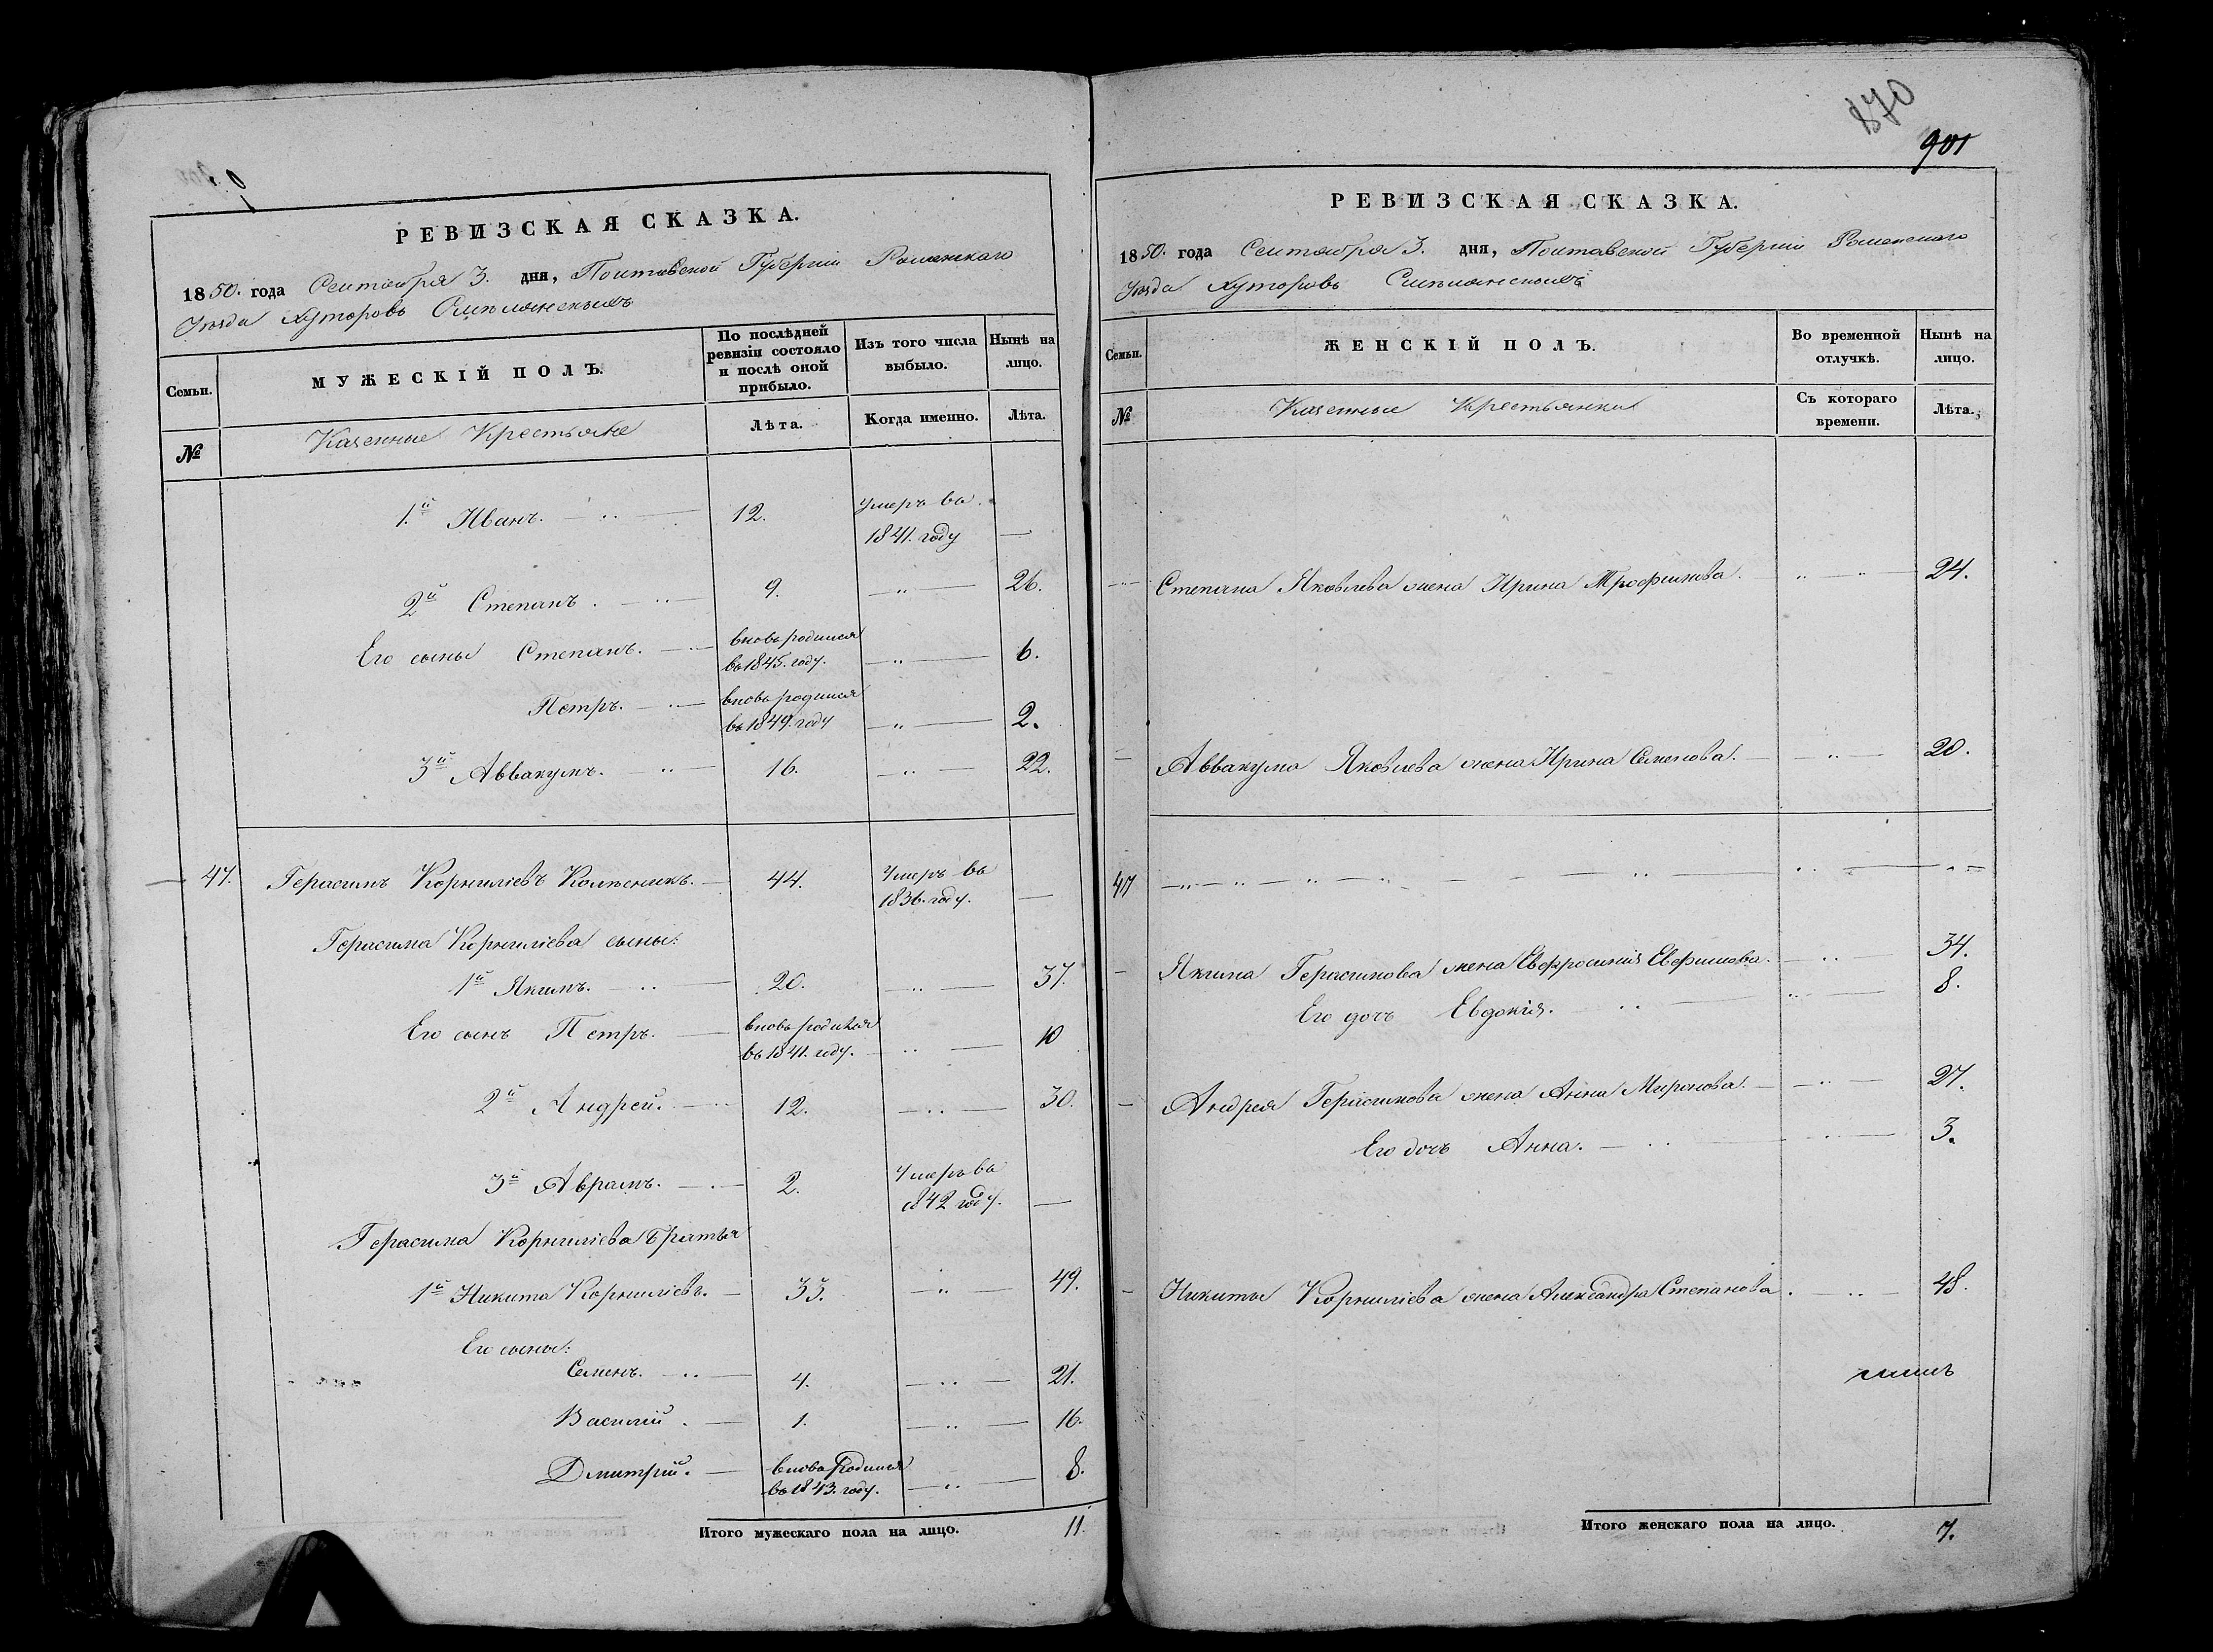 РЕВИЗСКАЯ СКАЗКА.
1850. года Сентября 3. дня, Полтавской Губерніи Роменскаго
Уезда Хуторовъ
Семьи.
МУЖЕСКІЙ ПОЛЪ.
По послѣдней ревизіи состояло и послѣ оной прибыло.
Изъ того числа выбыло.
Нынѣ на лицо.
№
Казенные Крестьяне
Лѣта.
Когда именно.
Лѣта.
1й Иванъ. 12. умеръ въ 1841. году —
2й Степанъ. 9. — 26.
Его сыны Степанъ. вновь родился въ 1845. году. — 6.
Петръ. вновь родился въ 1849. году — 2.
3й Аввакумъ. 16. — 22.
47. Герасимъ Корниліевъ 44. Умеръ въ 1836. году. —
Герасима Корниліева сыны:
1й Якимъ. 20. — 37.
Его сынъ Петръ. вновь родился въ 1841. году. — 10
2й Андрей. 12. — 30.
3й Аврамъ. 2. Умеръ въ 1842 году. —
Герасима Корниліева братья
1й Никита Корниліевъ. 33. — 49.
Его сыны:
Семенъ. 4. — 21.
Василій. 1. — 16.
Дмитрій. вновь родился въ 1843. году. — 8.
Итого мужескаго пола на лицо. 11.
870
901
РЕВИЗСКАЯ СКАЗКА.
1850. года Сентября 3. дня, Полтавской Губерніи Роменскаго
Уезда Хуторовъ
Семьи.
ЖЕНСКІЙ ПОЛЪ.
Во временной отлучкѣ.
Нынѣ на лицо.
№
Казенные Крестьянки
Съ котораго времени.
Лѣта.
Степана Яковлева жена Ирина Трофимова. — 24.
Аввакума Яковлева жена Ирина Семенова. — 20.
47
Якима Герасимова жена Евфросинія Евфимова. — 34.
Его дочь Евдокія. — 8.
Андрея Герасимова жена Анна Миронова. — 27.
Его дочь Анна. — 3.
Никиты Корниліева жена Александра Степанова. — 48.
Итого женскаго пола на лицо. 7.